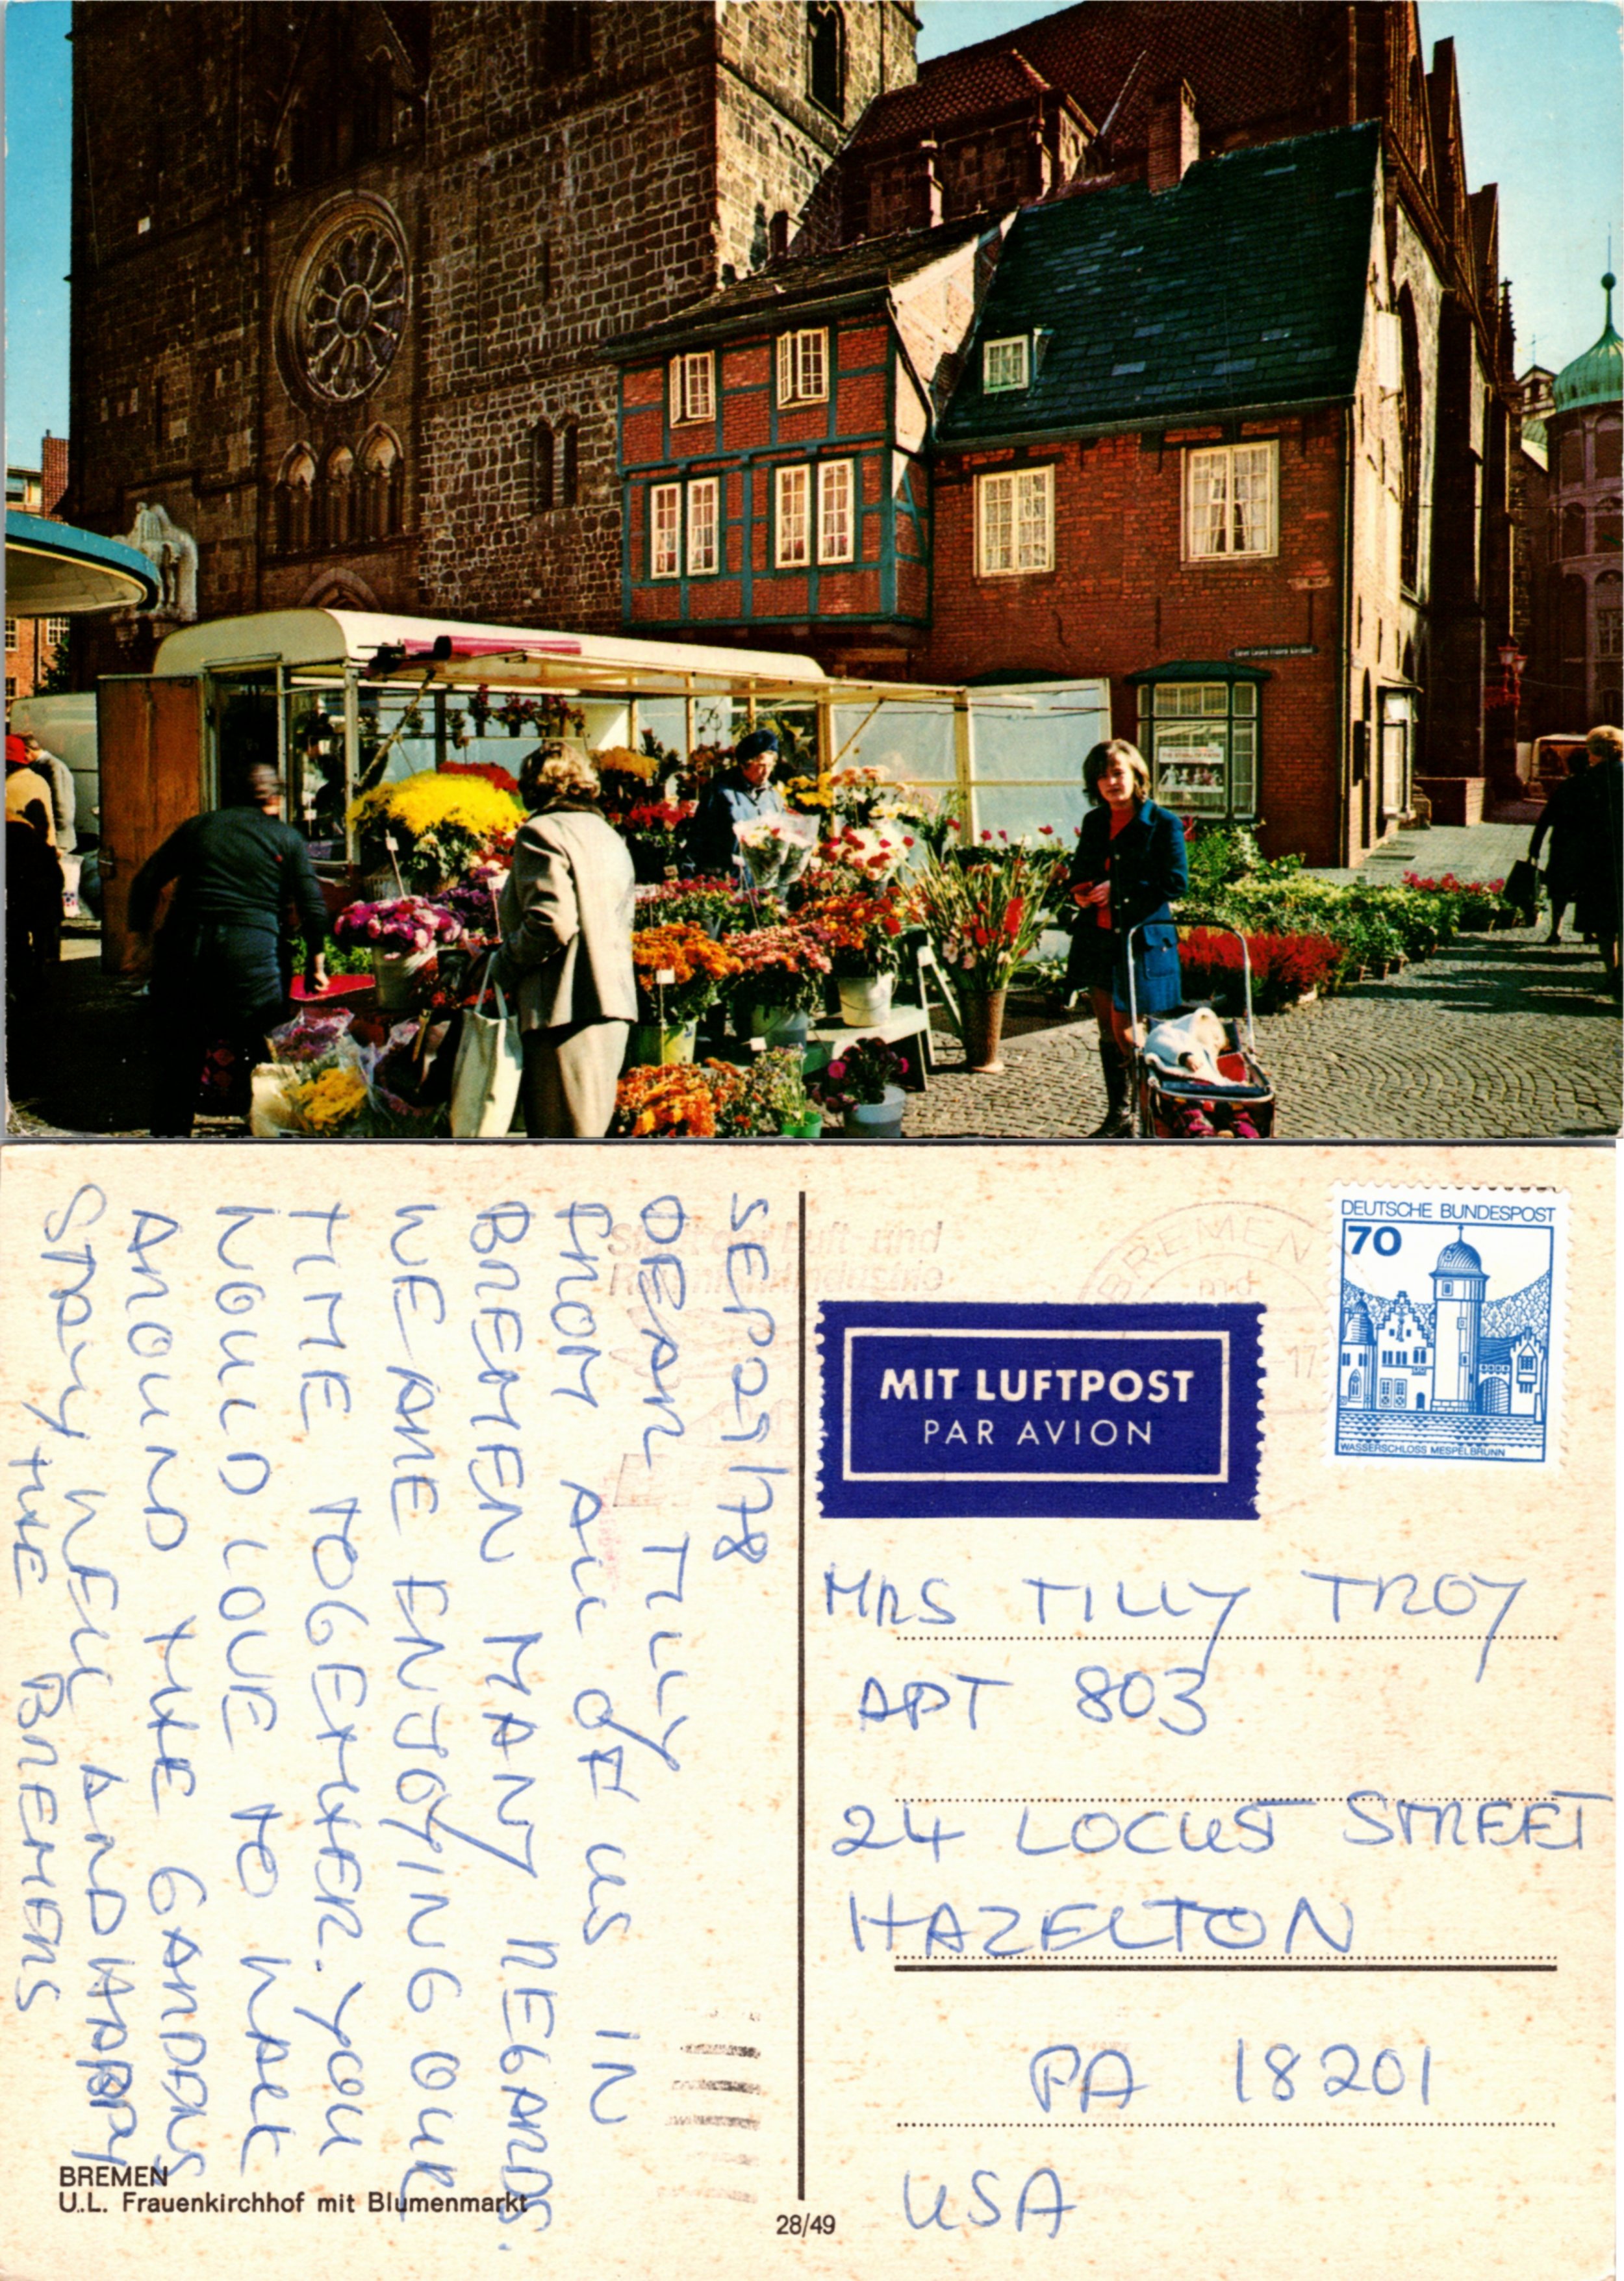 SEP 25/78
DEAR TILLY
FROM ALL OF US IN
BREMEN MANY REGARDS.
WE ARE ENJOYING OUR
TIME TOGETHER. YOU
WOULD LOVE TO WALK
AROUND THE GARDENS
STAY WELL AND HAPPY
THE BREMERS
BREMEN
U.L. Frauenkirchhof mit Blumenmarkt
28/49
BREMEN
-17
DEUTSCHE BUNDESPOST
70
WASSERSCHLOSS MESPELBRUNN
MIT LUFTPOST
PAR AVION
MRS TILLY TROY
APT 803
24 LOCUST STREET
HAZELTON
PA 18201
USA